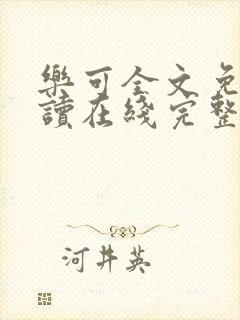 樂可全文免
讀在綫完整
河井英